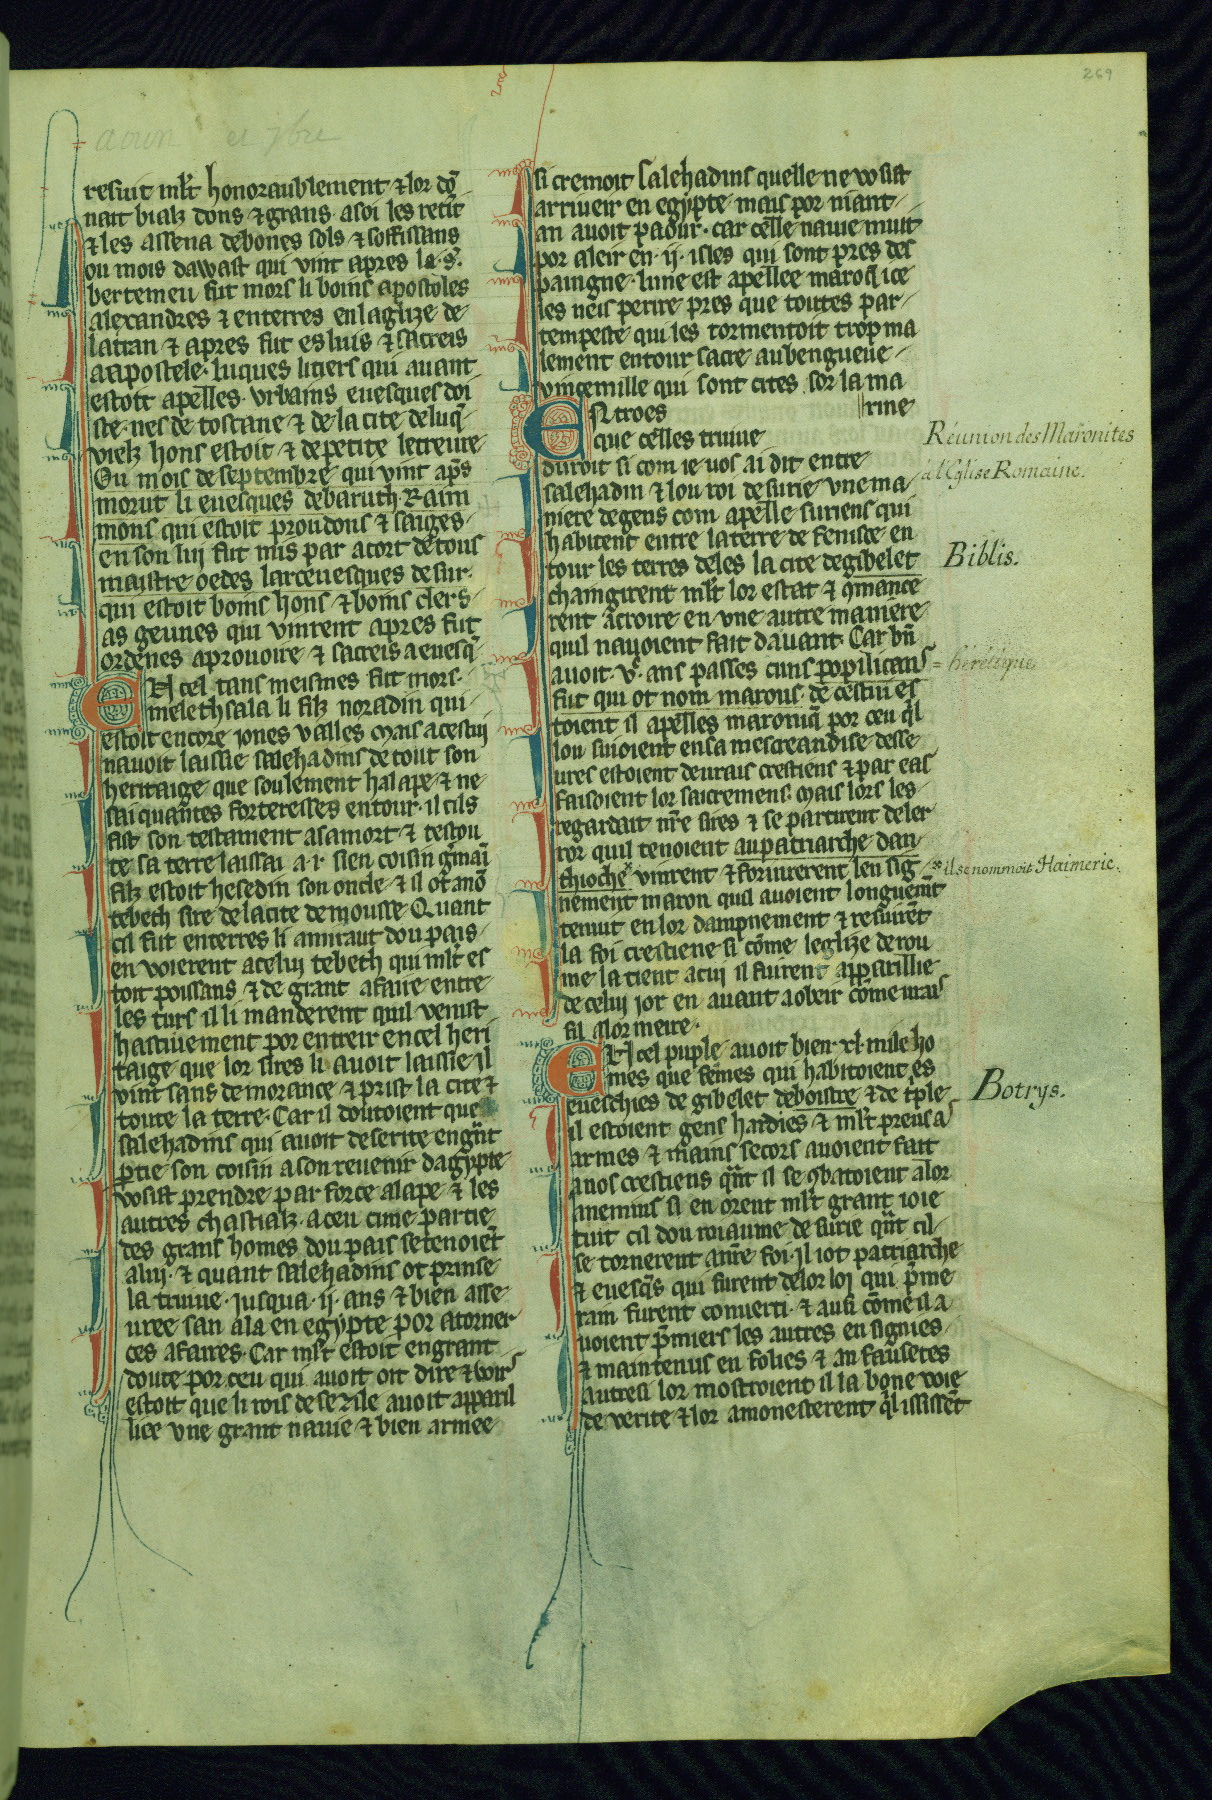 269
resuit ml't honoraublement ⁊ lor dō
nait bialz dons ⁊ grans. a soi les retīt
⁊ les assena de bones sols ⁊ soffissans
ou mois dawast qui vint apres la .s'.
bertemeu fut mors li boins apostoles
alexandres ⁊ enterres en laglize de
latran ⁊ apres fut esluis ⁊ sacreis
a apostele. luques litiers qui auant
estoit apelles. vrbains euesques doi
ste. nes de toscane ⁊ de la cite de luq̄
vielz hons estoit ⁊ de petite letreure
Ou mois de septembre qui vint ap̄s
morut li euesques de baruth Raim
mons qui estoit proudons ⁊ saiges
en son luj fut mis par acort de tous
maistre oedes larceuesques de sur.
qui estoit boins hons ⁊ boins clers
as geunes qui vinrent apres fut
ordenes a prouoire ⁊ sacreis a euesq̄
EN cel tans meismes fut mors.
melethsala li filz noradin qui
estoit encore iones valles mais a cestuj
nauoit laissie salehadins de tout son
heritaige que soulement halape ⁊ ne
sai quantes forteresses entour. il cils
fist son testament a sa mort ⁊ testou
te sa terre laissai a .i. sien coisin ḡmai
filz estoit hesedin son oncle ⁊ il ot anō
tebeth sire de la cite de mousse Quant
cil fut enterres li amiraut dou pais
en voierent a celuj tebeth qui ml't es
toit poissans ⁊ de grant afaire entre
les turs il li manderent quil venist
hastiuement por entreir en cel heri
taige que lor sires li auoit laissie il
vint sans demorance ⁊ prist la cite ⁊
toute la terre. Car il doutoient que
salehadins qui auoit deserite en gn̄t
ptie son coisin a son reuenir dagypte
vosist prendre par force alape ⁊ les
autres chastialz. a ceu cune partie
des grans homes dou pais se tenoiēt
a luj. ⁊ quant salehadins ot prinse
la truiue. iusqua .ij. ans ⁊ bien asse
uree san ala en egypte por atorner
ces afaires. Car ml't estoit en grant
doute por ceu qui auoit oit dire ⁊ voirs
estoit que li rois de sezile auoit apparil
liee vne grant nauie ⁊ bien armee
si cremoit salehadins quelle ne vosist
arriueir en egypte. mais por niant
an auoit paour. car celle nauie muit
por aleir en .ij. isles qui sont pres des
paingne. lune est apellee maroq̄ ice
les neis perire pres que toutes par
tempeste qui les tormentoit trop ma
lement entour sacre aubengueue
vingemille qui sont cites sor la ma
rine
Entroes
que celles truiue
duroit si com ie vos ai dit entre
salehadin ⁊ lou roi de surie vne ma
niere de gens com apelle suriens qui
habitent entre la terre de fenisce en
tour les terres deles la cite de gibelet
chaingirent ml't lor estat ⁊ 9mance
rent a croire en vne autre maniere
quil nauoient fait dauant. Car bn̄
auoit .vc. ans passes cuns popilicans
fut qui ot nom marous. de cestui es
toient il apelles maroniq̄ por ceu q'l
lou suioient en sa mescreandise desse
ures estoient de urais crestiens ⁊ par eas
faisoient lor sacremens. mais lors les
regardait nr̄e sires ⁊ se partirent deler
ror quil tenoient au patriarche dan
thioche vinrent ⁊ foriurerent len sig
nement maron quil auoient longuemt
tenut en lor dampnement ⁊ resuirēt
la foi crestiene si cōme leglize de rou
me la tient a cui il furent apparillie
de celuj ior en auant a obeir cōme urais
fil a lor meire.
EN cel puple auoit bien .xl. mile ho
mes que femes qui habitoient es
eueschies de gibelet de boistre ⁊ de t'ple
il estoient gens hardies ⁊ ml't preus a
armes ⁊ mains secors auoient fait
a nos crestiens qn̄t il se 9batoient a lor
anemins si en orent ml't grant ioie
tuit cil dou roiaume de surie qn̄t cil
se tornerent a nr̄e foi. il i ot patriarche
⁊ euesq̄s qui furent de lor loj qui p̄me
rain furent conuerti. ⁊ ausi cōme il a
uoient p̄miers les autres ensignies
⁊ maintenus en folies ⁊ an fausetes
autresi lor mostroient il la bone voie
de verite ⁊ lor amonesterent q'l ississēt
Réunion des Maronites
à l'Eglise Romaine.
Biblis.
= hérétique
* il se nommoit Haimeric.
Botrys.